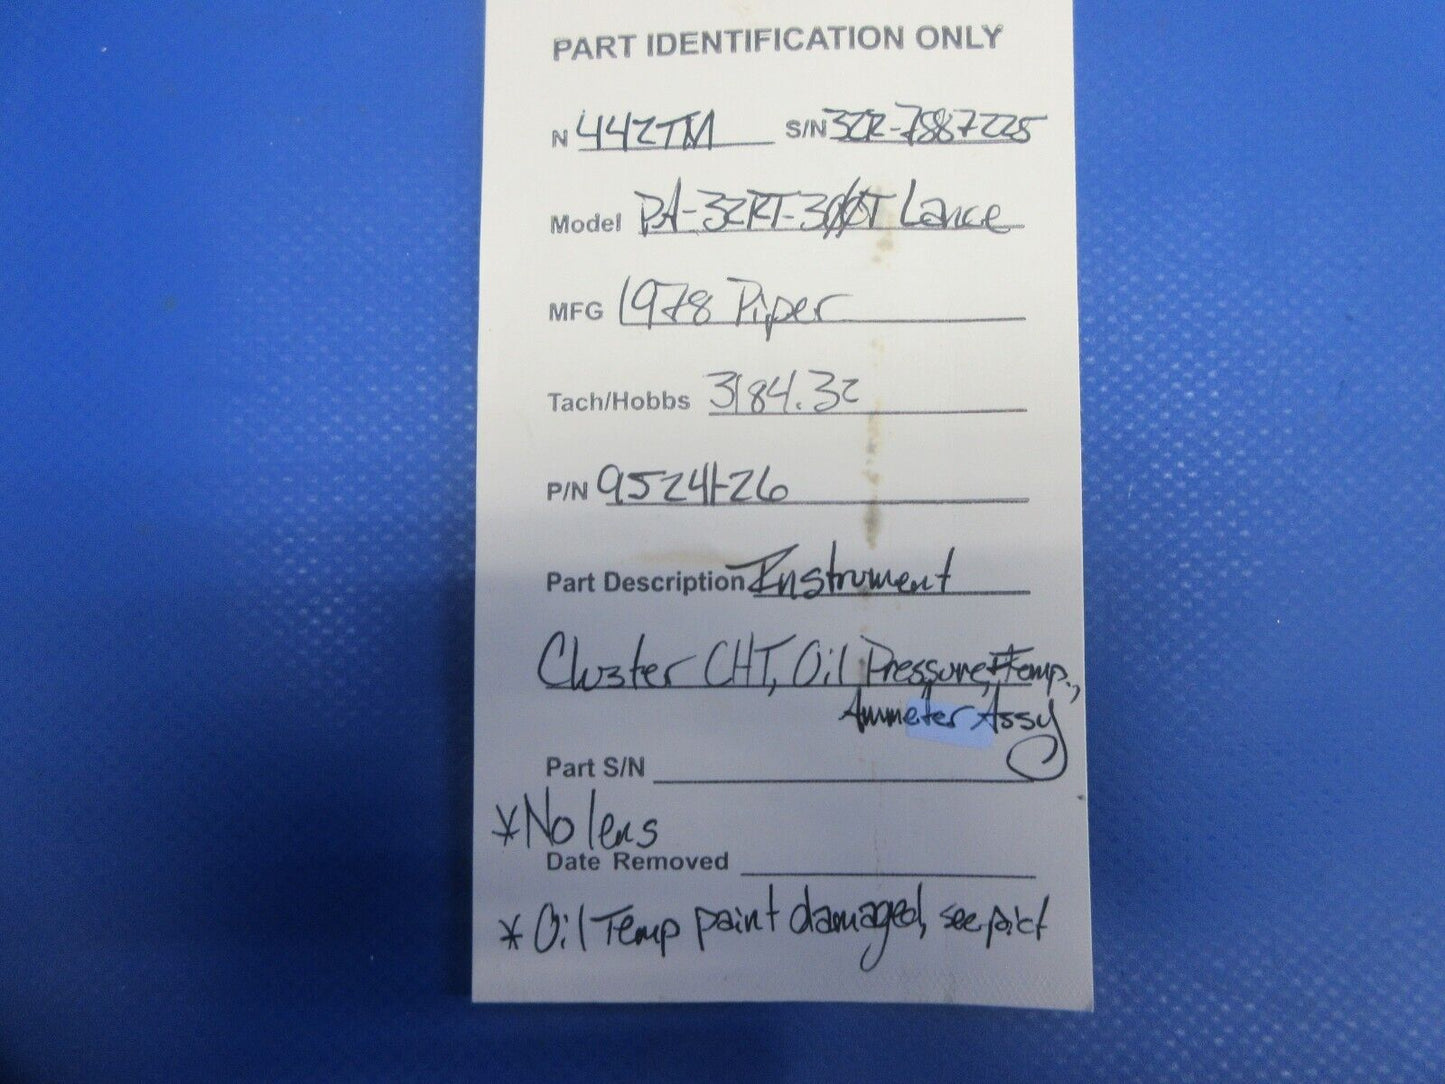 PART IDENTIFICATION ONLY
N 442TM S/N 32R-7887225
Model PA-32RT-300T Lance
MFG 1978 Piper
Tach/Hobbs 3184.32
P/N 95241-26
Part Description Instrument
Cluster CHT, Oil Pressure, + Temp.,
Ammeter Assy
Part S/N
* No lens
Date Removed
* Oil Temp paint damaged, see pict